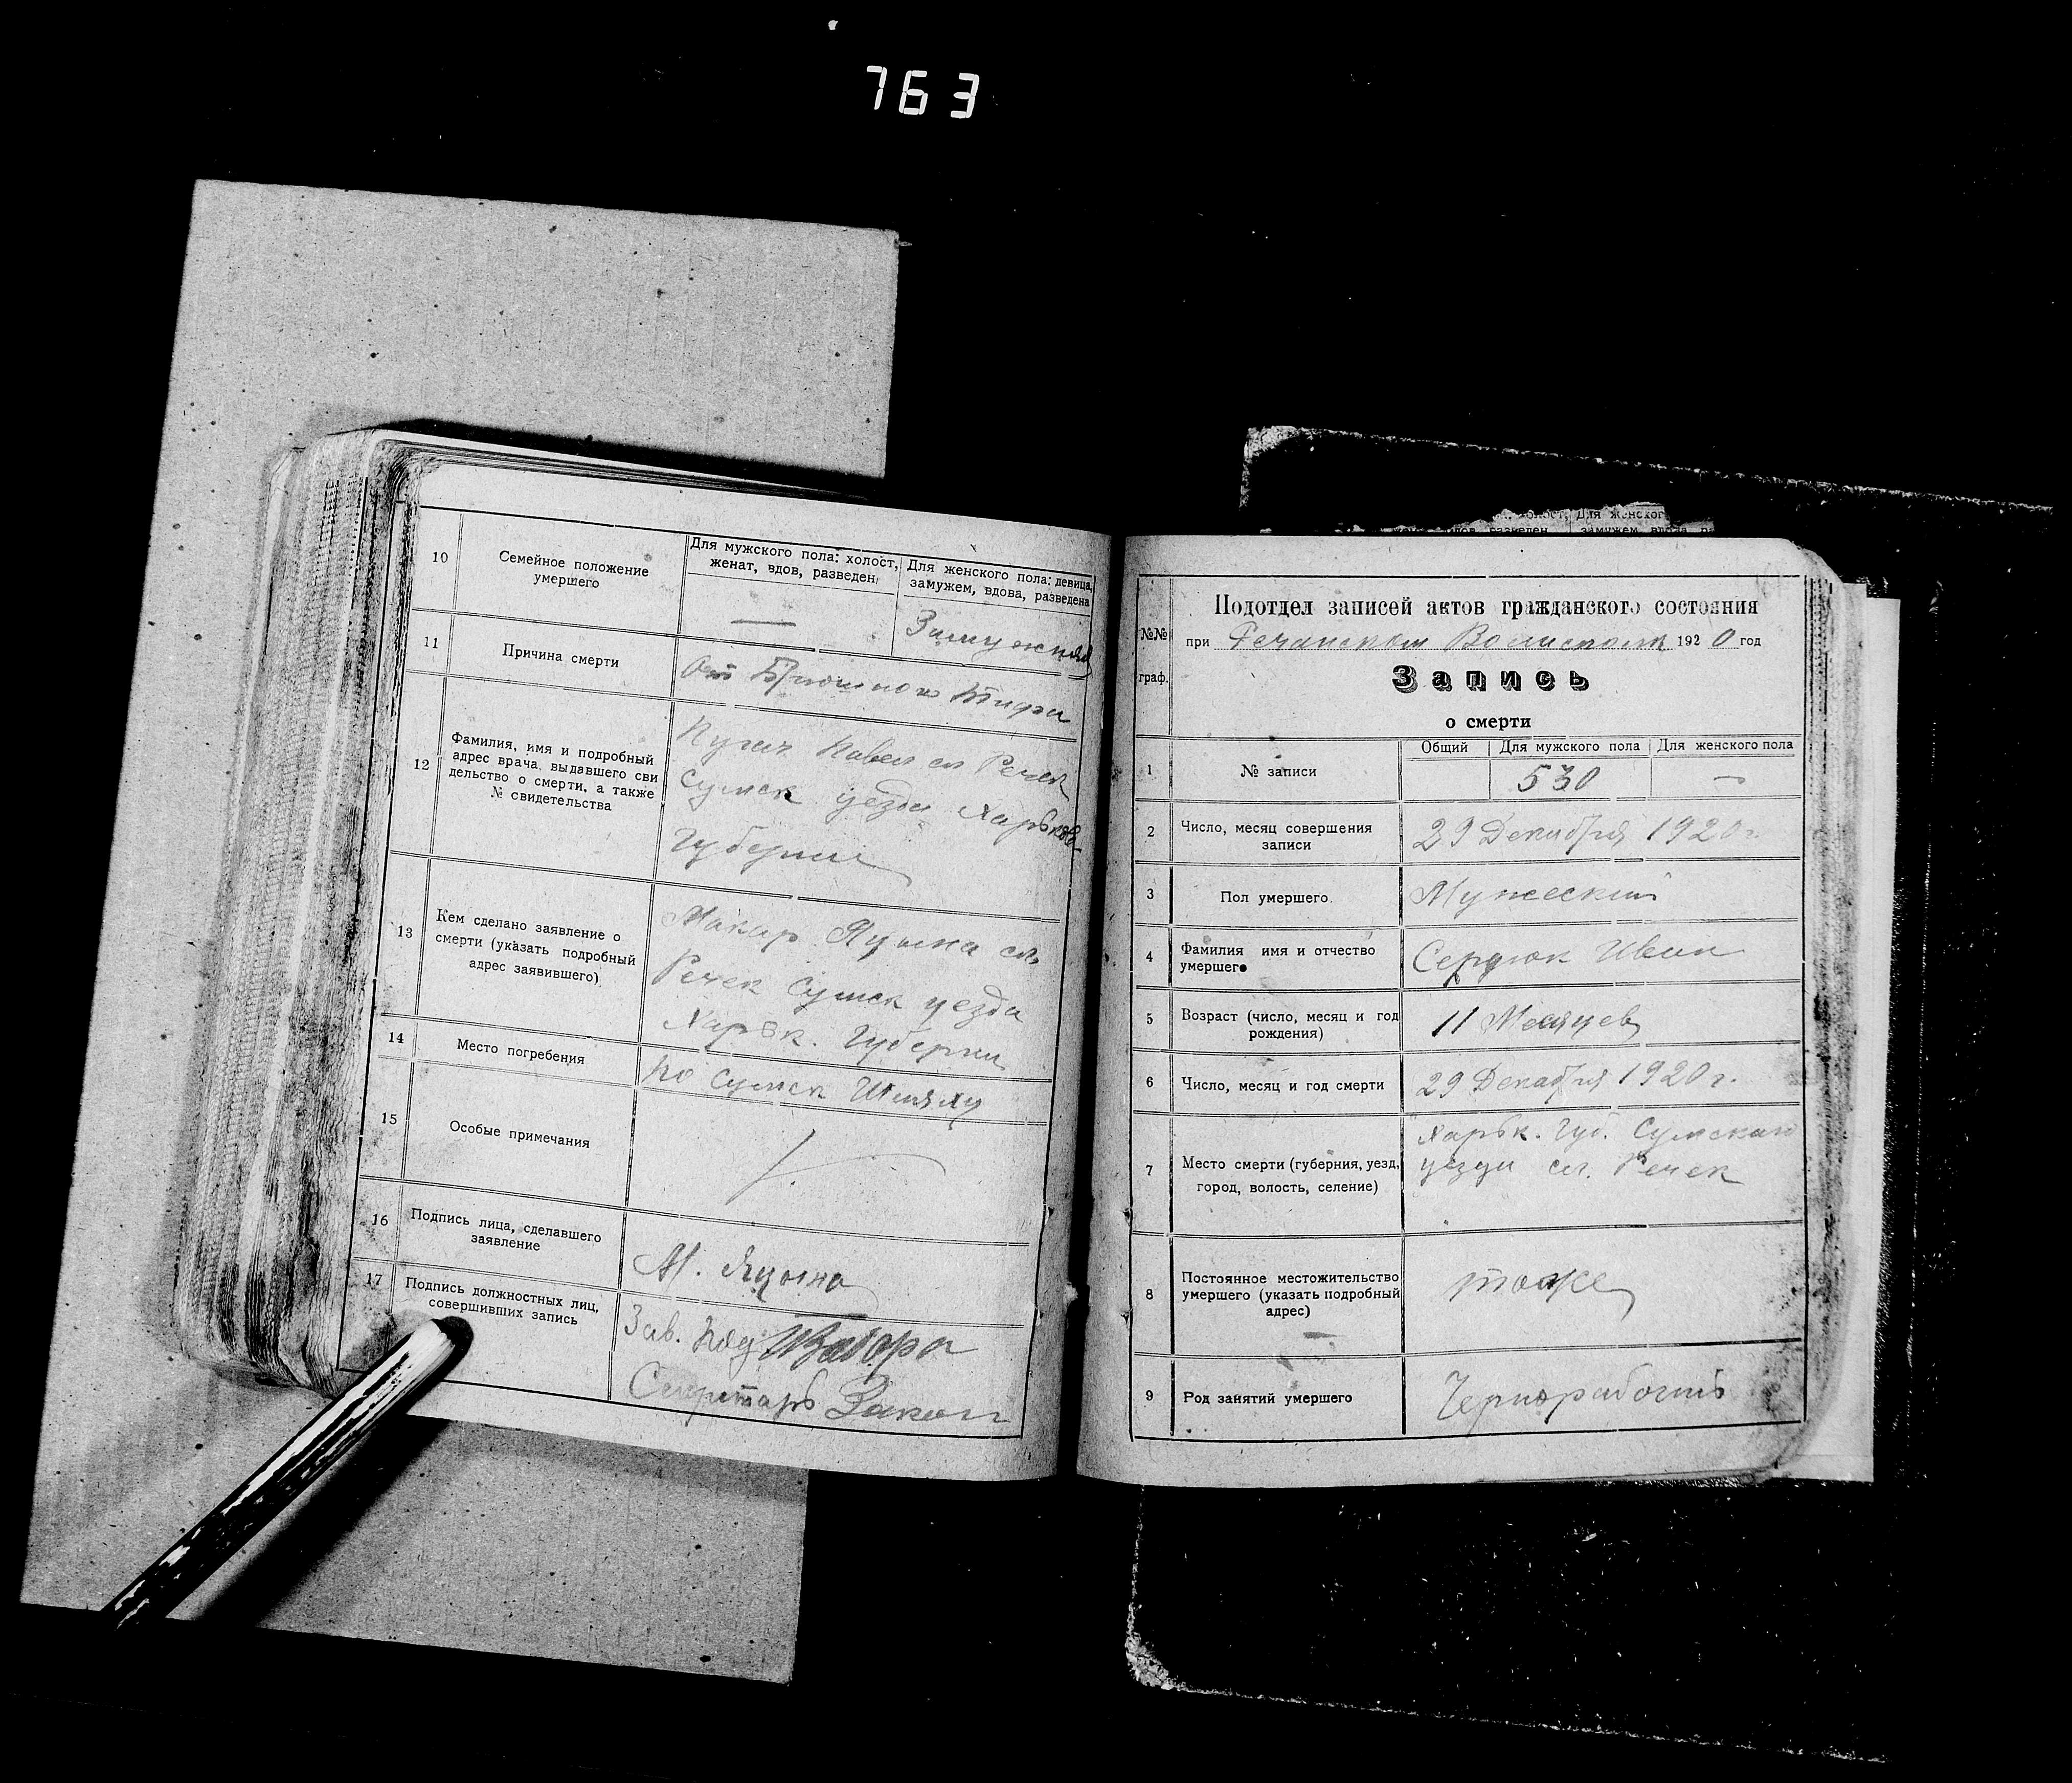 763
10
Семейное положение
умершего
Для мужского пола: холост,
женат, вдов, разведен
Для женского пола: девица,
замужем, вдова, разведена
—
Замужняя
11
Причина смерти
От Брюшного Тифа
12
Фамилия, имя и подробный
адрес врача, выдавшего сви
дельство о смерти, а также
№ свидетельства
Павел сл Речек
Сумск уезда Харьков
Губернии
13
Кем сделано заявление о
смерти (указать подробный
адрес заявившего)
Макар Яцына сл.
Речек Сумск уезда
Харьк. Губернии
14
Место погребения
по Сумск Шляху
15
Особые примечания
16
Подпись лица, сделавшего
заявление
М. Яцына
17
Подпись должностных лиц,
совершивших запись
Зав. Под
Секретарь
холост, Для женског
вдов, разведен замужем, вдова, р
№№
граф.
Подотдел записей актов гражданского состояния
при Речанском Волисполк 1920 год
Запись
о смерти
Общий
Для мужского пола
Для женского пола
1
№ записи
530
—
2
Число, месяц совершения
записи
29 Декабря 1920 г.
3
Пол умершего.
Мужеский
4
Фамилия имя и отчество
умершего
Сердюк Иван
5
Возраст (число, месяц и год
рождения)
11 Месяцев
6
Число, месяц и год смерти
29 Декабря 1920 г.
7
Место смерти (губерния, уезд,
город, волость, селение)
Харьк. Губ. Сумского
уезда сл. Речек
8
Постоянное местожительство
умершего (указать подробный
адрес)
тоже
9
Род занятий умершего
Чернорабочий